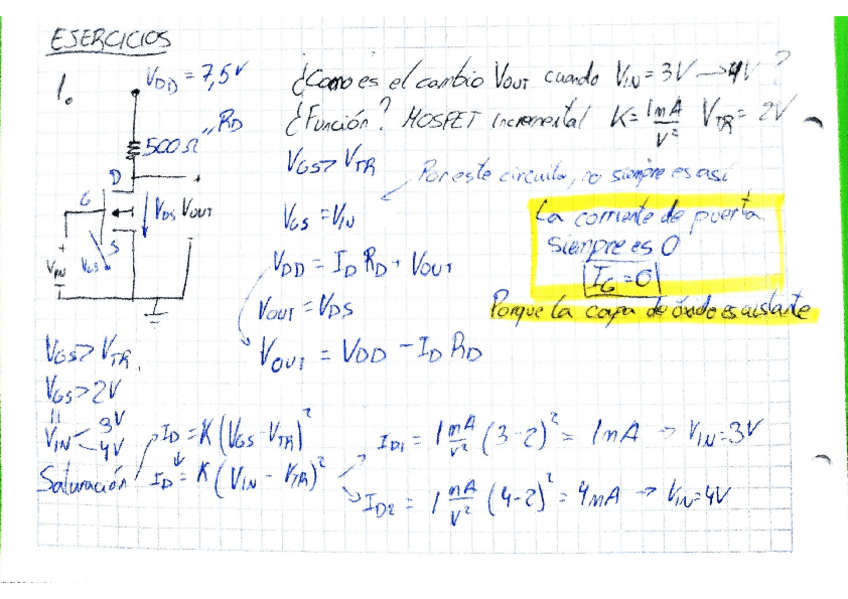 EJERCICIOS
1.
VDD = 7,5V
¿Como es el cambio VOUT cuando VIN = 3V → 4V?
¿Función? MOSFET incremental K = 1mA/V² VTR = 2V
500Ω "RD
VGS > VTR
Por este circuito, no siempre es así
D
G
S
VDS VOUT
VIN
VGS
VGS = VIN
La corriente de puerta
siempre es 0
IG = 0
Porque la capa de óxido es aislante
VDD = ID RD + VOUT
VOUT = VDS
VOUT = VDD - ID RD
VGS > VTR
VGS > 2V
"
VIN 3V
4V
Saturación
ID = K(VGS - VTR)²
ID = K(VIN - VTR)²
ID1 = 1 mA/V² (3-2)² = 1mA → VIN = 3V
ID2 = 1 mA/V² (4-2)² = 4mA → VIN = 4V